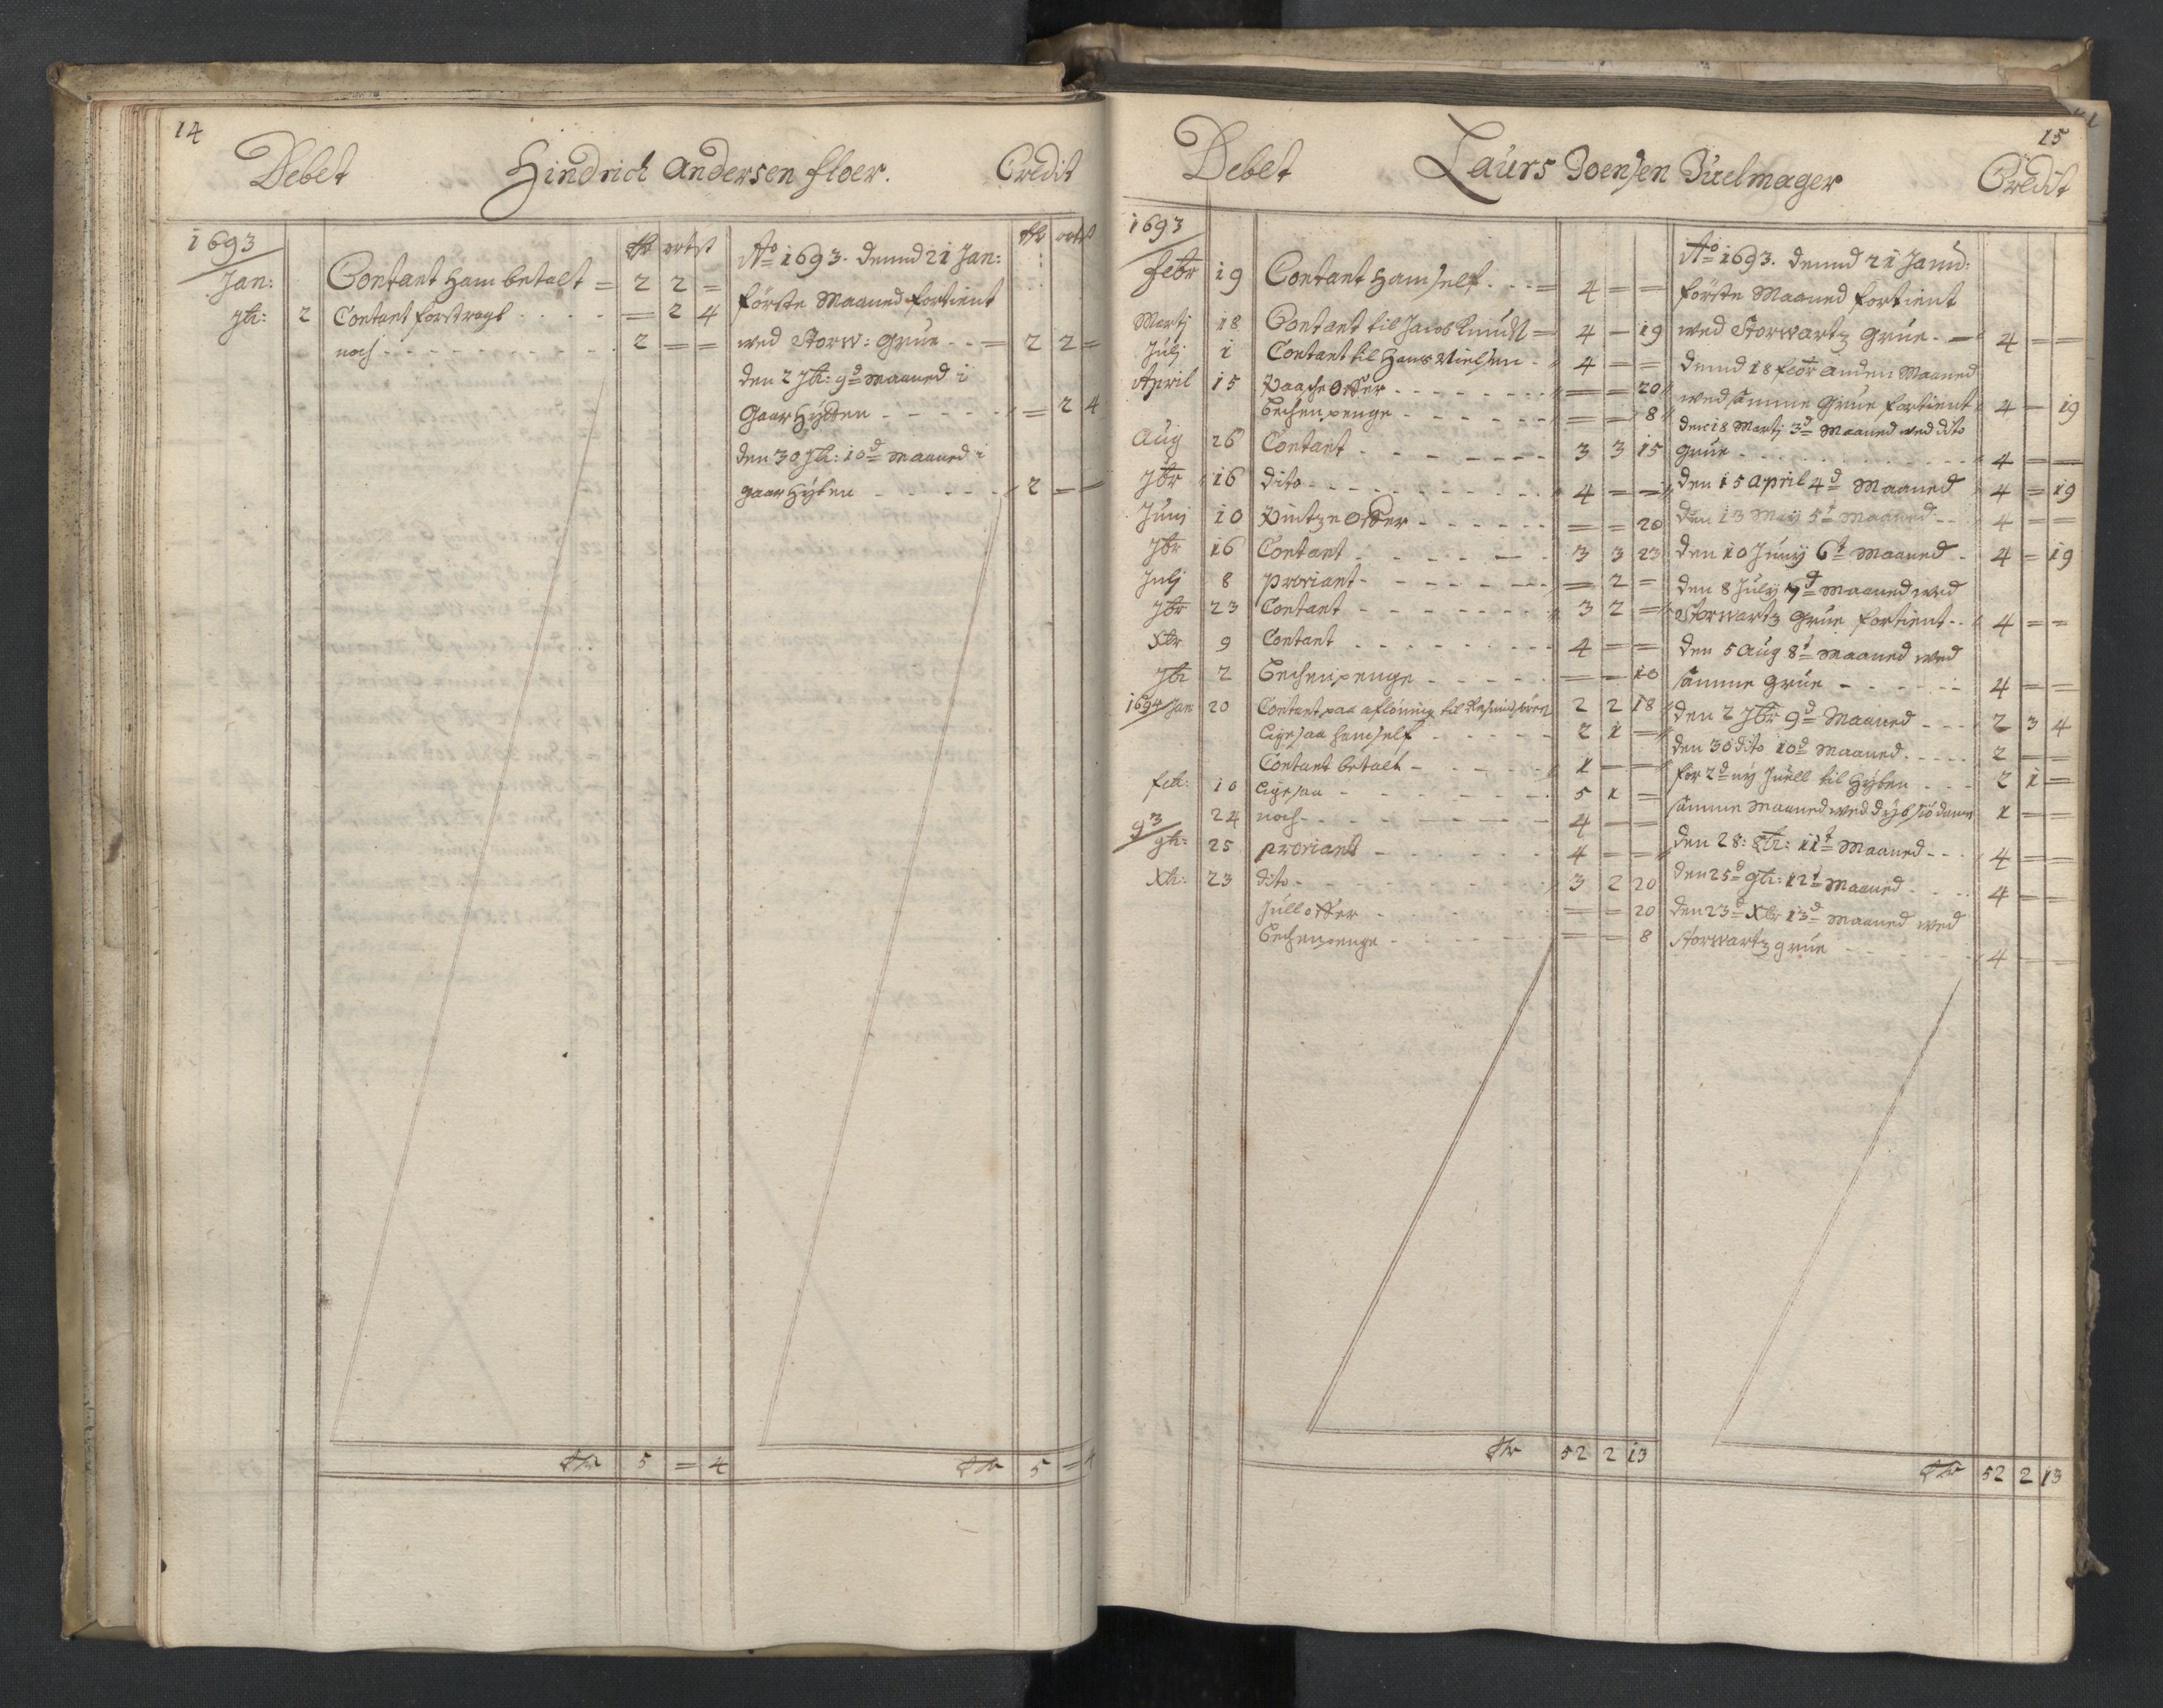 14
Debet Hindrich Andersen floer. Credit
1693
Rdr ort ß
Jan: Contant ham betalt = 2 2 =
7br: 2 Contant forstragt . . . . = 2 4
noch - - - - - - - - 2 = =
Rdr ort ß
Ao 1693. dennd 21 Jan:
förste Maaned fortient
wed Storw: Grue - - = 2 2 =
den 2 7br: 9d Maaned i
Gaar Hytten - - - - - = 2 4
den 30 7br: 10d Maaned i
gaar Hyten - - - - - 2 = =
Rdr 5 = 4
Rdr 5 = 4
15
Debet Laurs Joensen Juelmager Credit
1693
Febr 19 Contant ham self . - - = 4 = =
Martj 18 Contant til Jacob Knudß = 4 = 19
Julj 1 Contant til Hans Nielsen - 4 = =
April 15 Paasche Offer - - - - - - = = 20
Bechenpenge - - - - - - = = 8
Aug 26 Contant - - - - - - 3 3 15
7br 16 dito - - - - - - - - 4 = =
Junj 10 Pintze Offer - - - - - - = = 20
7br 16 Contant - - - - - - 3 3 23
Julj 8 proviant - - - - - - = 2 =
7br 23 Contant - - - - - - - 3 2 =
Xbr 9 Contant - - - - - - - 4 = =
7br 2 Bechenpenge - - - - - = = 10
1694 Jan 20 Contant paa aflöning til 2 2 18
ligesaa hamself - - - - - 2 1 =
Contant betalt - - - - - 1 = =
feb: 10 ligesaa - - - - - - - 5 1 =
24 noch - - - - - - - 4 = =
93
9br: 25 proviant - - - - - - 4 = =
Xbr: 23 dito - - - - - - - 3 2 20
Jull offer - - - - - - = = 20
Bechenpenge - - - - - - = = 8
Ao 1693. dennd 21 Janu:
förste Maaned fortient
wed Storwartz Grue - = 4 = =
dennd 18 febr anden Maaned
wed samme Grue fortient 4 = 19
den 18 Martj 3d Maaned wed dito
grue - - - - - - - - 4 = =
den 15 April 4d Maaned 4 = 19
den 13 May 5t Maaned - - 4 = =
den 10 Junij 6t Maaned - 4 = 19
den 8 Julij 7d Maaned wed
Storwartz Grue fortient - - 4 = =
den 5 Aug 8t Maaned wed
samme Grue - - - - - - 4 = =
den 2 7br 9d Maaned - - - 2 3 4
den 30 dito 10d Maaned - - - - - 2 = =
for 2d ny Juell til Hyten - - - 2 1 =
samme Maaned wed dybsiö damm 1 = =
den 28: 8br: 11t Maaned - - - 4 = =
den 25d 9br: 12t Maaned - - - 4 = =
den 23d Xbr 13d Maaned wed
Storwartz grue - - - - - - 4 = =
Rdr 52 2 13
Rdr 52 2 13